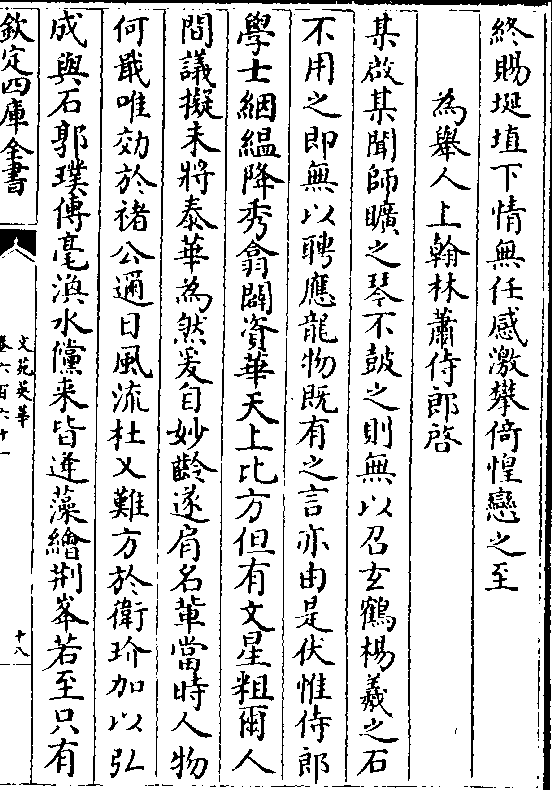 終賜埏埴下情無任感激攀倚惶戀之至
為舉人上翰林蕭侍郎啓
某啟某聞師曠之琴不鼓之則無以召玄鶴楊羲之石
不用之即無以聘應龍物既有之言亦由是伏惟侍郎
學士絪緼降秀翕闢資華天上比方但有文星粗爾人
間議擬未將泰華為然爰自妙齡遂肩名軰當時人物
何戢唯効於褚公邇日風流杜乂難方於衛玠加以弘
成與石郭璞傳毫澒水儻来皆逆藻繪荆峯若至只有
欽定四庫全書
文苑英華
卷六百六十一
十八